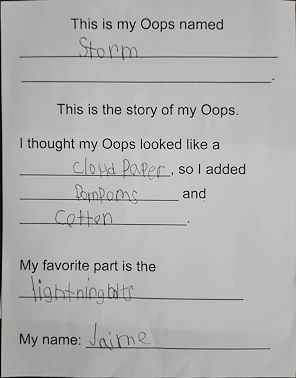 This is my Oops named
Storm
.
This is the story of my Oops.
I thought my Oops looked like a
Cloud Paper, so I added
Pompoms and
Cotten.
My favorite part is the
lightningbolts
My name: Jaime